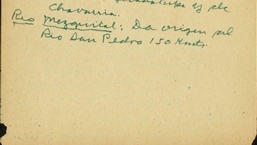 Guadalupe y de
Chavarria.
Rio Mezquital: Da origen al
Rio San Pedro 150 Kmts.